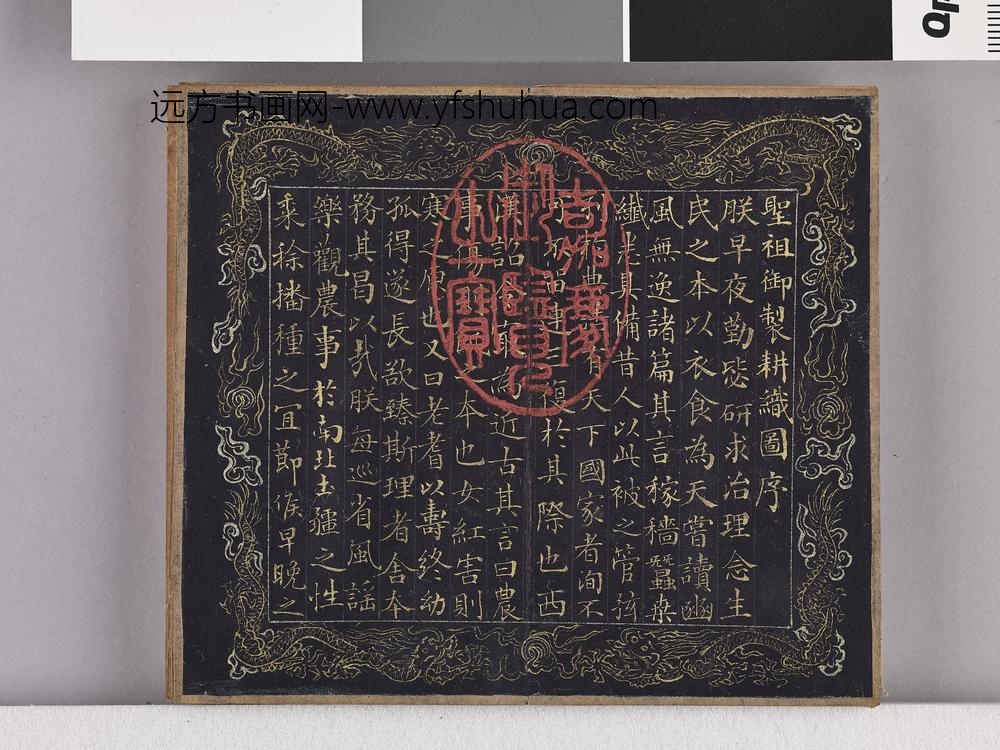 远方书画网-www.yfshuhua.com
聖祖御製耕織圖序
朕早夜勤毖研求治理念生
民之本以衣食為天嘗讀豳
風無逸諸篇其言稼穡蠶桒
纖悉具備昔人以此被之管弦
列有天下國家者洵不
可不留連三復於其際也西
漢詔令最為近古其言曰農
事傷之本也女紅害則
寒之原也又曰老耆以壽終幼
孤得遂長欲臻斯理者舍本
務其曷以哉朕每巡省風謠
樂觀農事於南北土疆之性
黍稌播種之宜節候早晚之
嘉慶御覽之寶